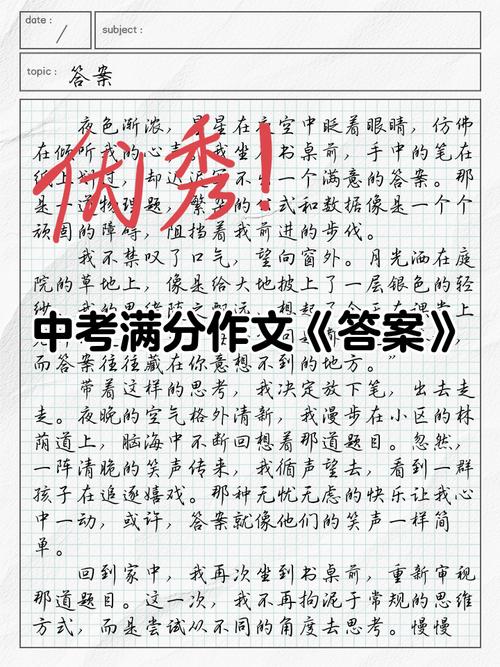 date :
subject :
topic : 答案
夜色渐浓，星星在夜空中眨着眼睛，仿佛
在倾听我的心声。我坐在书桌前，手中的笔在
纸上划过，却迟迟写不出一个满意的答案。那
是一道物理题，繁杂的公式和数据像是一个个
顽固的障碍，阻挡着我前进的步伐。
优秀！
我不禁叹了口气，望向窗外。月光洒在庭
院的草地上，像是给大地披上了一层银色的轻
中考满分作文《答案》
而答案往往藏在你意想不到的地方。”
带着这样的思考，我决定放下笔，出去走
走。夜晚的空气格外清新，我漫步在小区的林
荫道上，脑海中不断回想着那道题目。忽然，
一阵清脆的笑声传来，我循声望去，看到一群
孩子在追逐嬉戏。那种无忧无虑的快乐让我心
中一动，或许，答案就像他们的笑声一样简
单。
回到家中，我再次坐到书桌前，重新审视
那道题目。这一次，我不再拘泥于常规的思维
方式，而是尝试从不同的角度去思考。慢慢